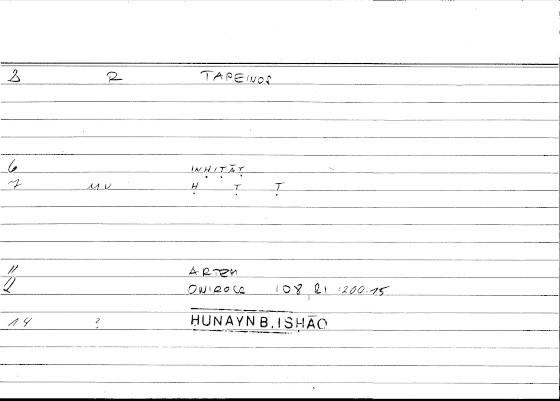 3 R TAPEINOS
6 INḤIṬĀṬ
7 MV Ḥ Ṭ Ṭ
11 ARTEM
12 ONIROCR 108, 21 : 200.15
14 ? HUNAYN B. ISHĀQ